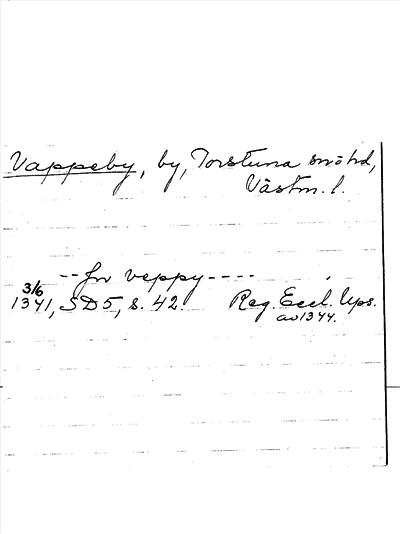 Vappeby, by, Torstuna sn o hd,
Västm. l.
-- frv veppy ----
3/6
1341, SD5, s. 42. Reg. Eccl. Ups.
av 1344.